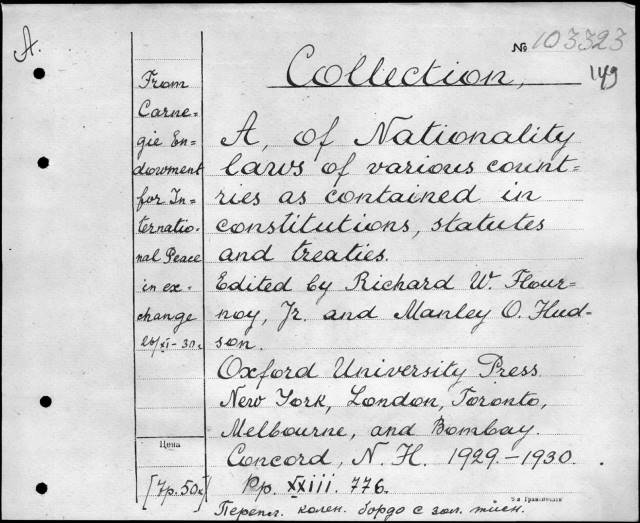 A.
№ 103323
149
Collection,
From
Carne=
gie En=
dowment
for In=
ternatio-
nal Peace
in ex-
change
26/XI-30.
A, of Nationality
laws of various count=
ries as contained in
constitutions, statutes
and treaties.
Edited by Richard W. Flour=
noy, Jr. and Manley O. Hud-
son.
Oxford University Press
New York, London, Toronto,
Melbourne, and Bombay.
Concord, N. H. 1929.-1930.
Pp. XXIII. 776.
Цена
[7р.50к]
Перепл. колен. бордо с зол. тисн.